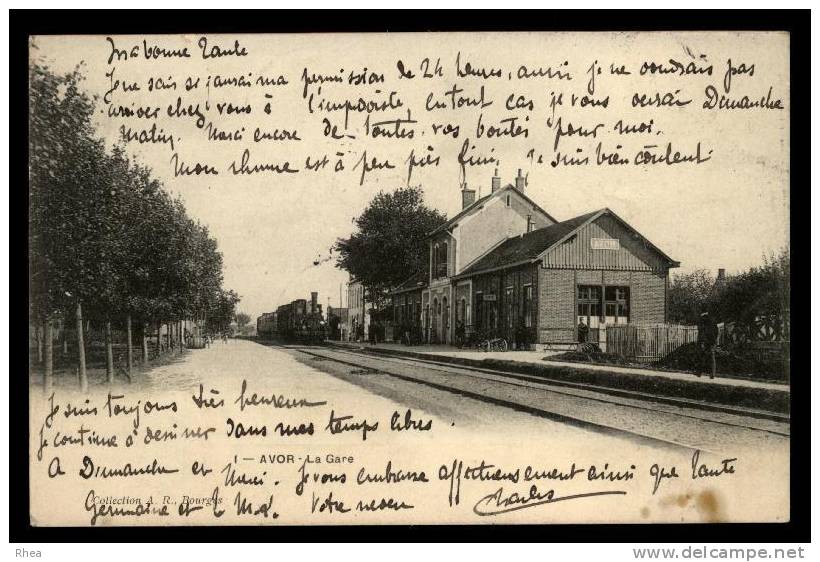 Ma bonne Tante
Je ne sais si j'aurai ma permission de 24 heures, aussi je ne voudrais pas
arriver chez vous à l'improviste, en tout cas je vous verai Dimanche
Matin. Merci encore de toutes vos bontés pour moi.
Mon rhume est à peu près fini, Je suis bien content
Je suis toujours très heureux
je continue à dessiner dans mes temps libres
1 — AVOR - La Gare
A Dimanche et Merci. Je vous embrasse affectueusement ainsi que Tante
Collection A. R., Bourges
Germaine et le
Votre neveu Charles
Rhea
www.delcampe.net